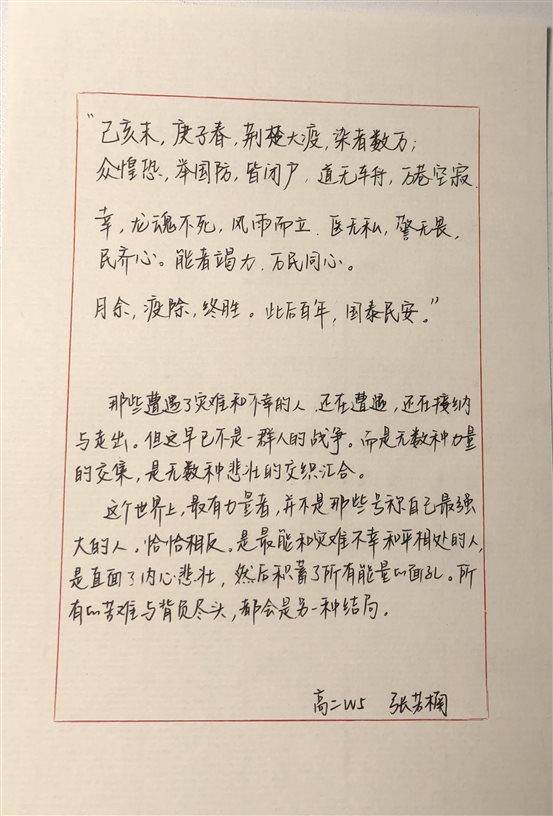 “己亥末，庚子春，荆楚大疫，染者数万；
众惶恐，举国防，皆闭户，道无车舟，万巷空寂.
幸，龙魂不死，风雨而立.医无私，警无畏，
民齐心。能者竭力.万民同心。
月余，疫除，终胜。此后百年，国泰民安。”
那些遭遇了灾难和不幸的人.还在遭遇，还在接纳
与走出。但这早已不是一群人的战争。而是无数种力量
的交集，是无数种悲壮的交织汇合。
这个世界上，最有力量者，并不是那些号称自己最强
大的人。恰恰相反。是最能和灾难不幸和平相处的人，
是直面了内心悲壮，然后积蓄了所有能量的面孔。所
有的苦难与背负尽头，都会是另一种结局。
高二W5 张芳楠